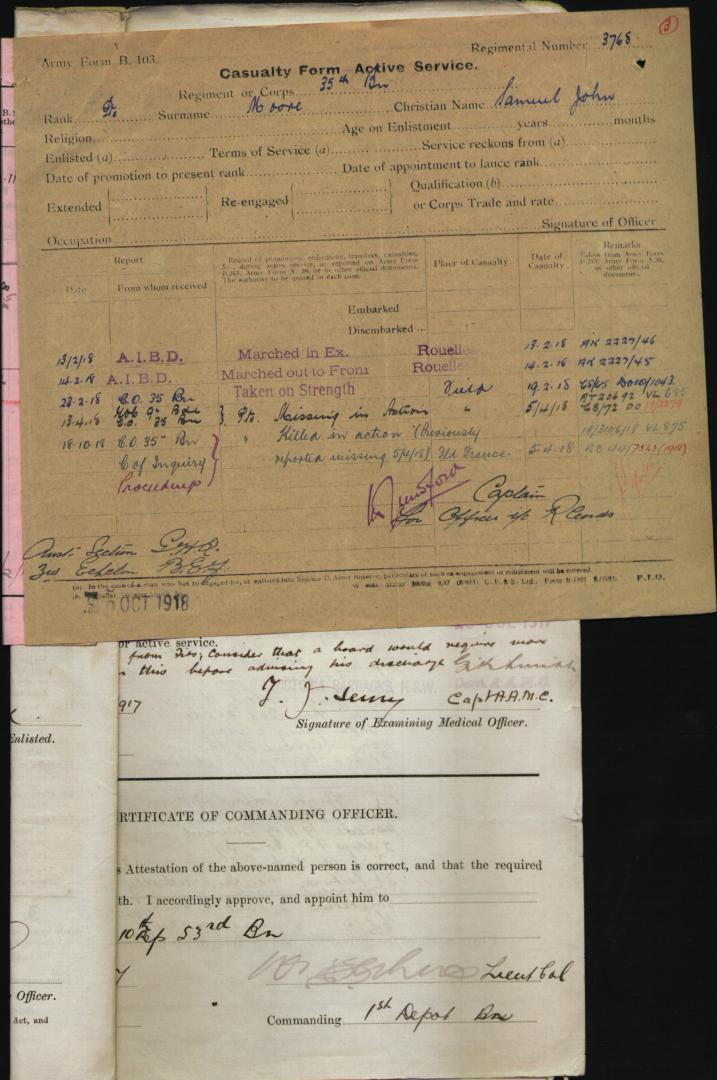 3
Army Form B. 103.
Regimental Number 3768
Casualty Form—Active Service.
Regiment or Corps 35th Bn
Rank Pte Surname Moore Christian Name Samuel John
Religion Age on Enlistment years months
Enlisted (a) Terms of Service (a) Service reckons from (a)
Date of promotion to present rank Date of appointment to lance rank
Extended Re-engaged Qualification (b)
or Corps Trade and rate
Occupation Signature of Officer
Report
Date From whom received
Record of promotions, reductions, transfers, casualties, &c., during active service, as reported on Army Form B.213, Army Form A. 36, or in other official documents. The authority to be quoted in each case.
Place of Casualty
Date of Casualty
Remarks
Taken from Army Form B.213, Army Form A.36, or other official documents.
Embarked
Disembarked
13/2/18 A.I.B.D. Marched in Ex. Rouelles 13.2.18 AK 2227/46
14.2.18 A.I.B.D. Marched out to From Rouelles 14.2.18 AK 2227/45
23.2.18 C.O. 35 Bn Taken on Strength Field 19.2.18
13.4.18 C.O. 35 Bn Pte. Missing in Action " 5/4/18
18-10-18 C.O. 35th Bn " Killed in action (Previously
C of Inquiry reported missing 5/4/18) Fld France 5.4.18
Proceedings
Captain
for Officer i/c Records
Aust. Section G.H.Q.
3rd Echelon B.E.F.
(a) In the case of a man who has re-engaged for, or enlisted into Section D, Army Reserve, particulars of such re-engagement or enlistment will be entered.
P.T.O.
OCT 1918
or active service.
from Fits; Consider that a board would require more
this before advising his discharge
VICTORIA BARRACKS, N.S.W.
917
Capt A.A.M.C.
Signature of Examining Medical Officer.
Enlisted.
RTIFICATE OF COMMANDING OFFICER.
s Attestation of the above-named person is correct, and that the required
th. I accordingly approve, and appoint him to
10th Rep 53rd Bn
Lieut Col
Officer.
Act, and
Commanding 1st Depot Bn